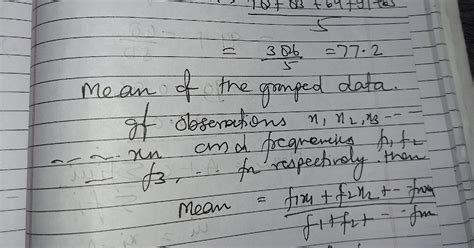 5
= 386/5 = 77.2
Mean of the grouped data.
If observations x1, x2, x3 ---
-- --- xn and frequencies f1, f2
--- f3, ... fn respectively then
Mean = f1x1 + f2x2 + -- fnxn / f1 + f2 + -- fn